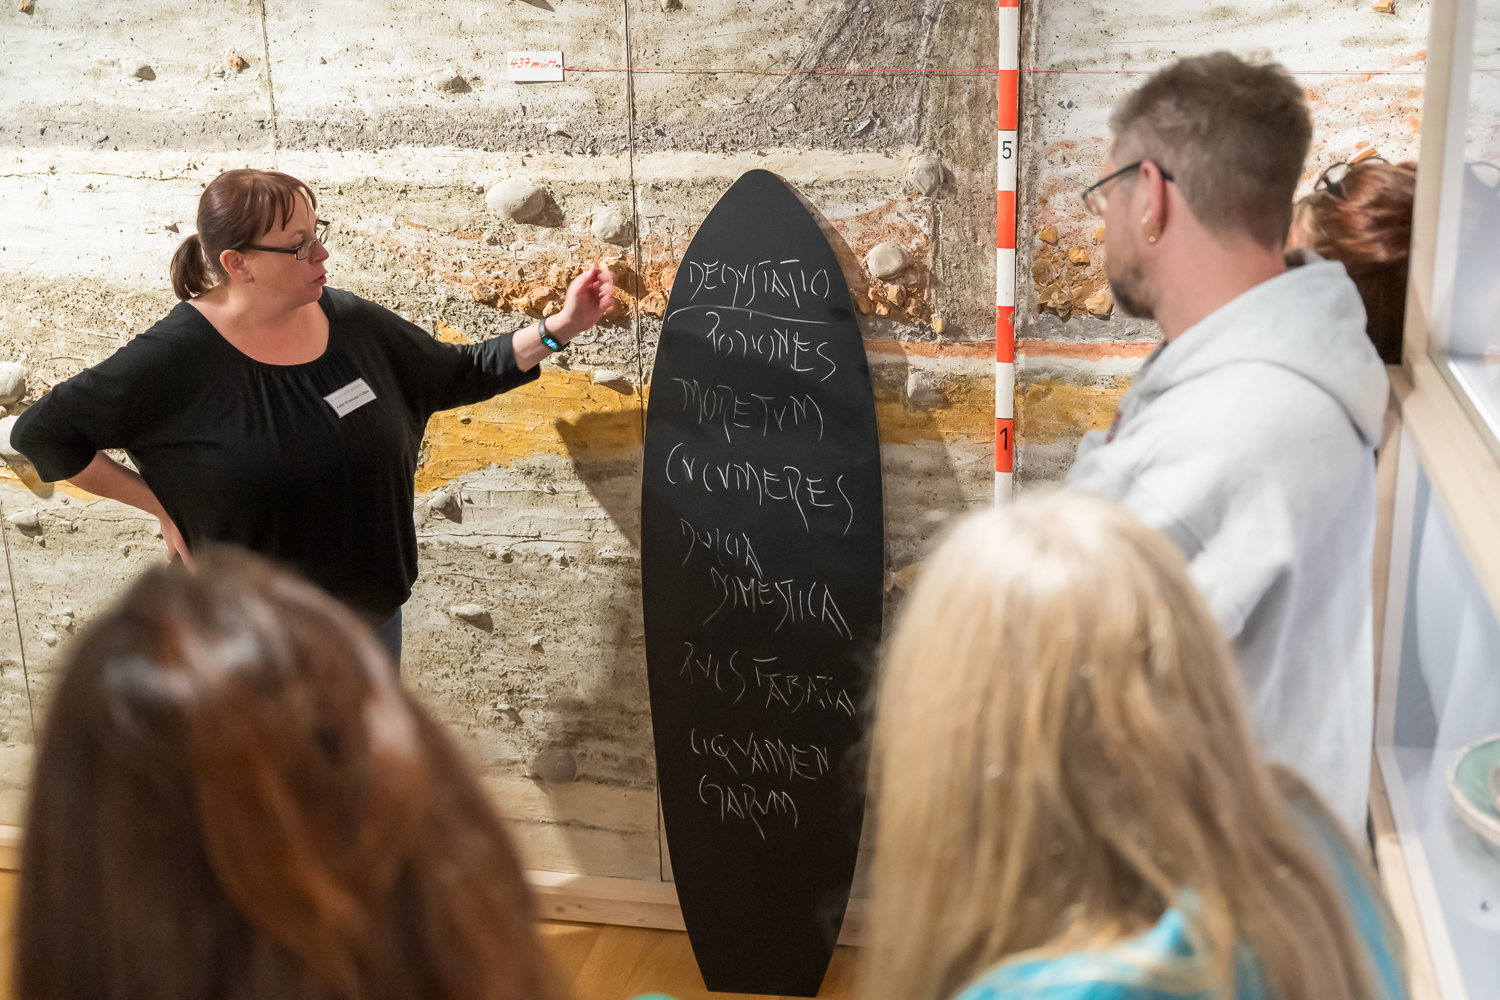 437 müM
5
1
DEGUSTATIO
POTIONES
MORETVM
CVCVMERES
DULCIA
DOMESTICA
PVLS FABATA
LIQVAMEN
GARVM